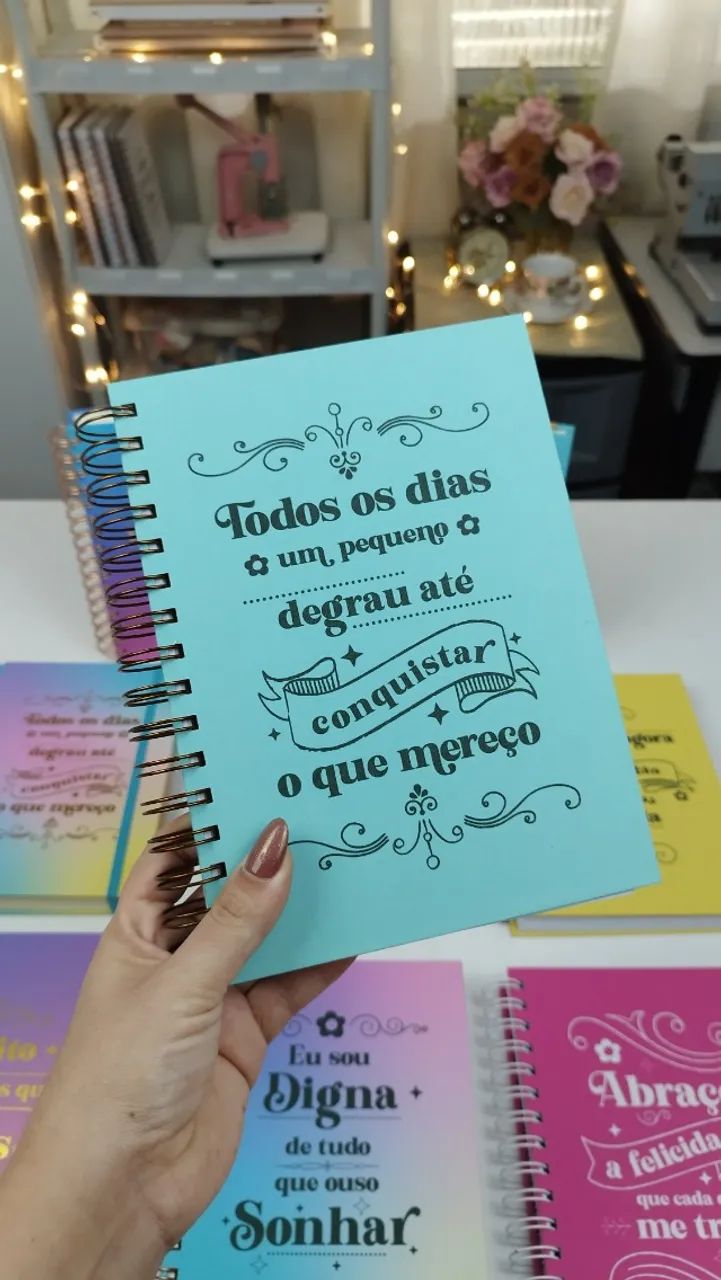 Todos os dias
um pequeno
degrau até
conquistar
o que mereço
Todos os dias
um pequeno
degrau até
conquistar
o que mereço
Eu sou
Digna
de tudo
que ouso
Sonhar
a felicida
que cada
me tr